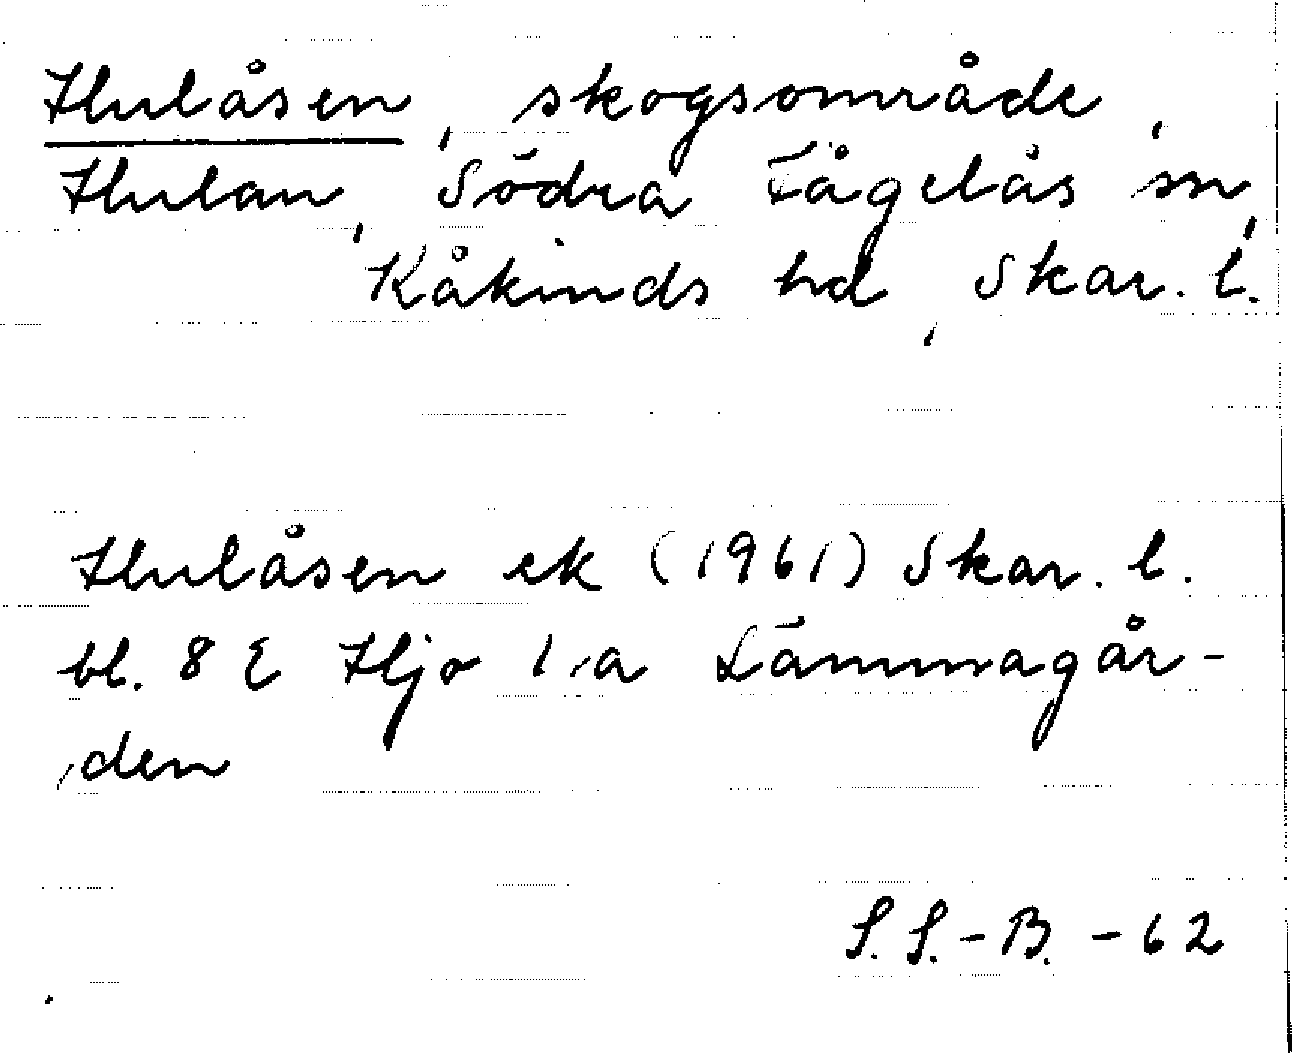 Hulåsen, skogsområde,
Hulan, Södra Fågelås sn,
Kåkinds hd, Skar. l.
Hulåsen ek (1961) Skar. l.
bl. 8 E Hjo 1 a Lämmagår-
den
S. S.-B. -62